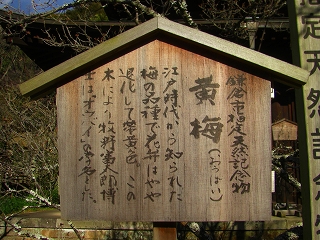 鎌倉市指定天然記念物
黄梅
(おうばい)
江戸時代から知られた
梅の品種で花弁はやや
退化して帯黄色 この
木により牧野富太郎博
士はオウバイの
指定天然記念物